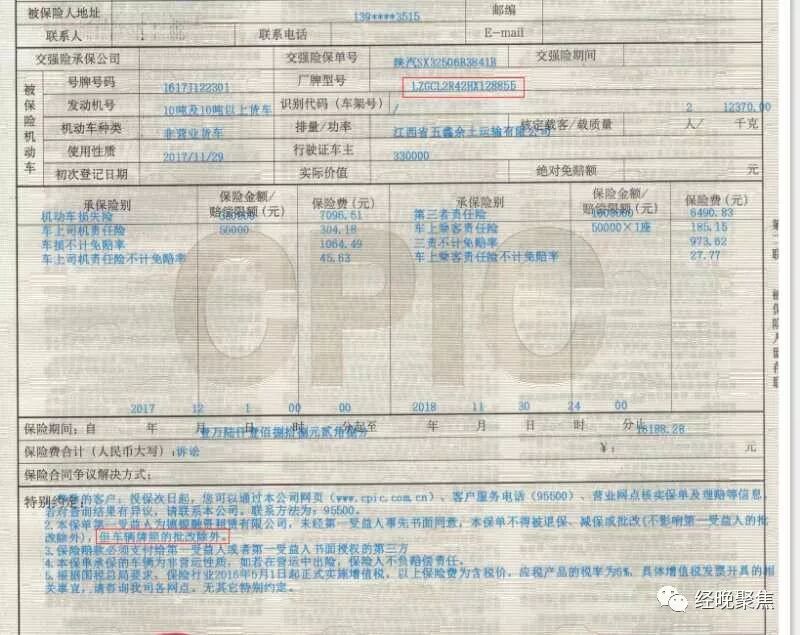 被保险人地址 139****3515 邮编
联系人 联系电话 E-mail
交强险承保公司 交强险保单号 陕汽SX32506B3841B 交强险期间
被保险机动车
号牌号码 1617J122301 厂牌型号 LZGCL2R42HX128855
发动机号 10吨及10吨以上货车 识别代码（车架号） / 2 12370.00
机动车种类 非营业货车 排量/功率 江西省五鑫余土运输有限公司 核定载客/载质量 人/ 千克
使用性质 2017/11/29 行驶证车主 330000
初次登记日期 实际价值 绝对免赔额 元
承保险别 保险金额/赔偿限额（元） 保险费（元） 承保险别 保险金额/赔偿限额（元） 保险费（元）
机动车损失险 7096.61 第三者责任险 6490.83
车上司机责任险 50000 304.18 车上乘客责任险 50000×1座 185.15
车损不计免赔率 1064.49 三责不计免赔率 973.62
车上司机责任险不计免赔率 45.63 车上乘客责任险不计免赔率 27.77
CPIC
2017 12 1 00 00 2018 11 30 24 00
保险期间：自 年 月 日 时 分起至 年 月 日 时 分止
16188.28
保险费合计（人民币大写）：诉讼 ￥： 元
保险合同争议解决方式：
特别约定：
的客户，投保次日起，您可以通过本公司网页（www.cpic.com.cn）、客户服务电话（95500）、营业网点核实保单及理赔等信息，
若对查询结果有异议，请联系本公司。联系方法为：95500。
2.本保单第一受益人为 融资租赁有限公司，未经第一受益人事先书面同意，本保单不得被退保、减保或批改(不影响第一受益人的批
改除外)，但车辆牌照的批改除外。
3.保险赔款必须支付给第一受益人或者第一受益人书面授权的第三方
4.本保单承保的车辆为非营运性质，如若在营运中出险，保险人不负赔偿责任。
5.根据国税总局要求，保险行业2016年5月1日起正式实施增值税，以上保险费为含税价，应税产品的税率为6%，具体增值税发票开具的相
关事宜，请咨询我司各网点。无其它特别约定。
经晚聚焦